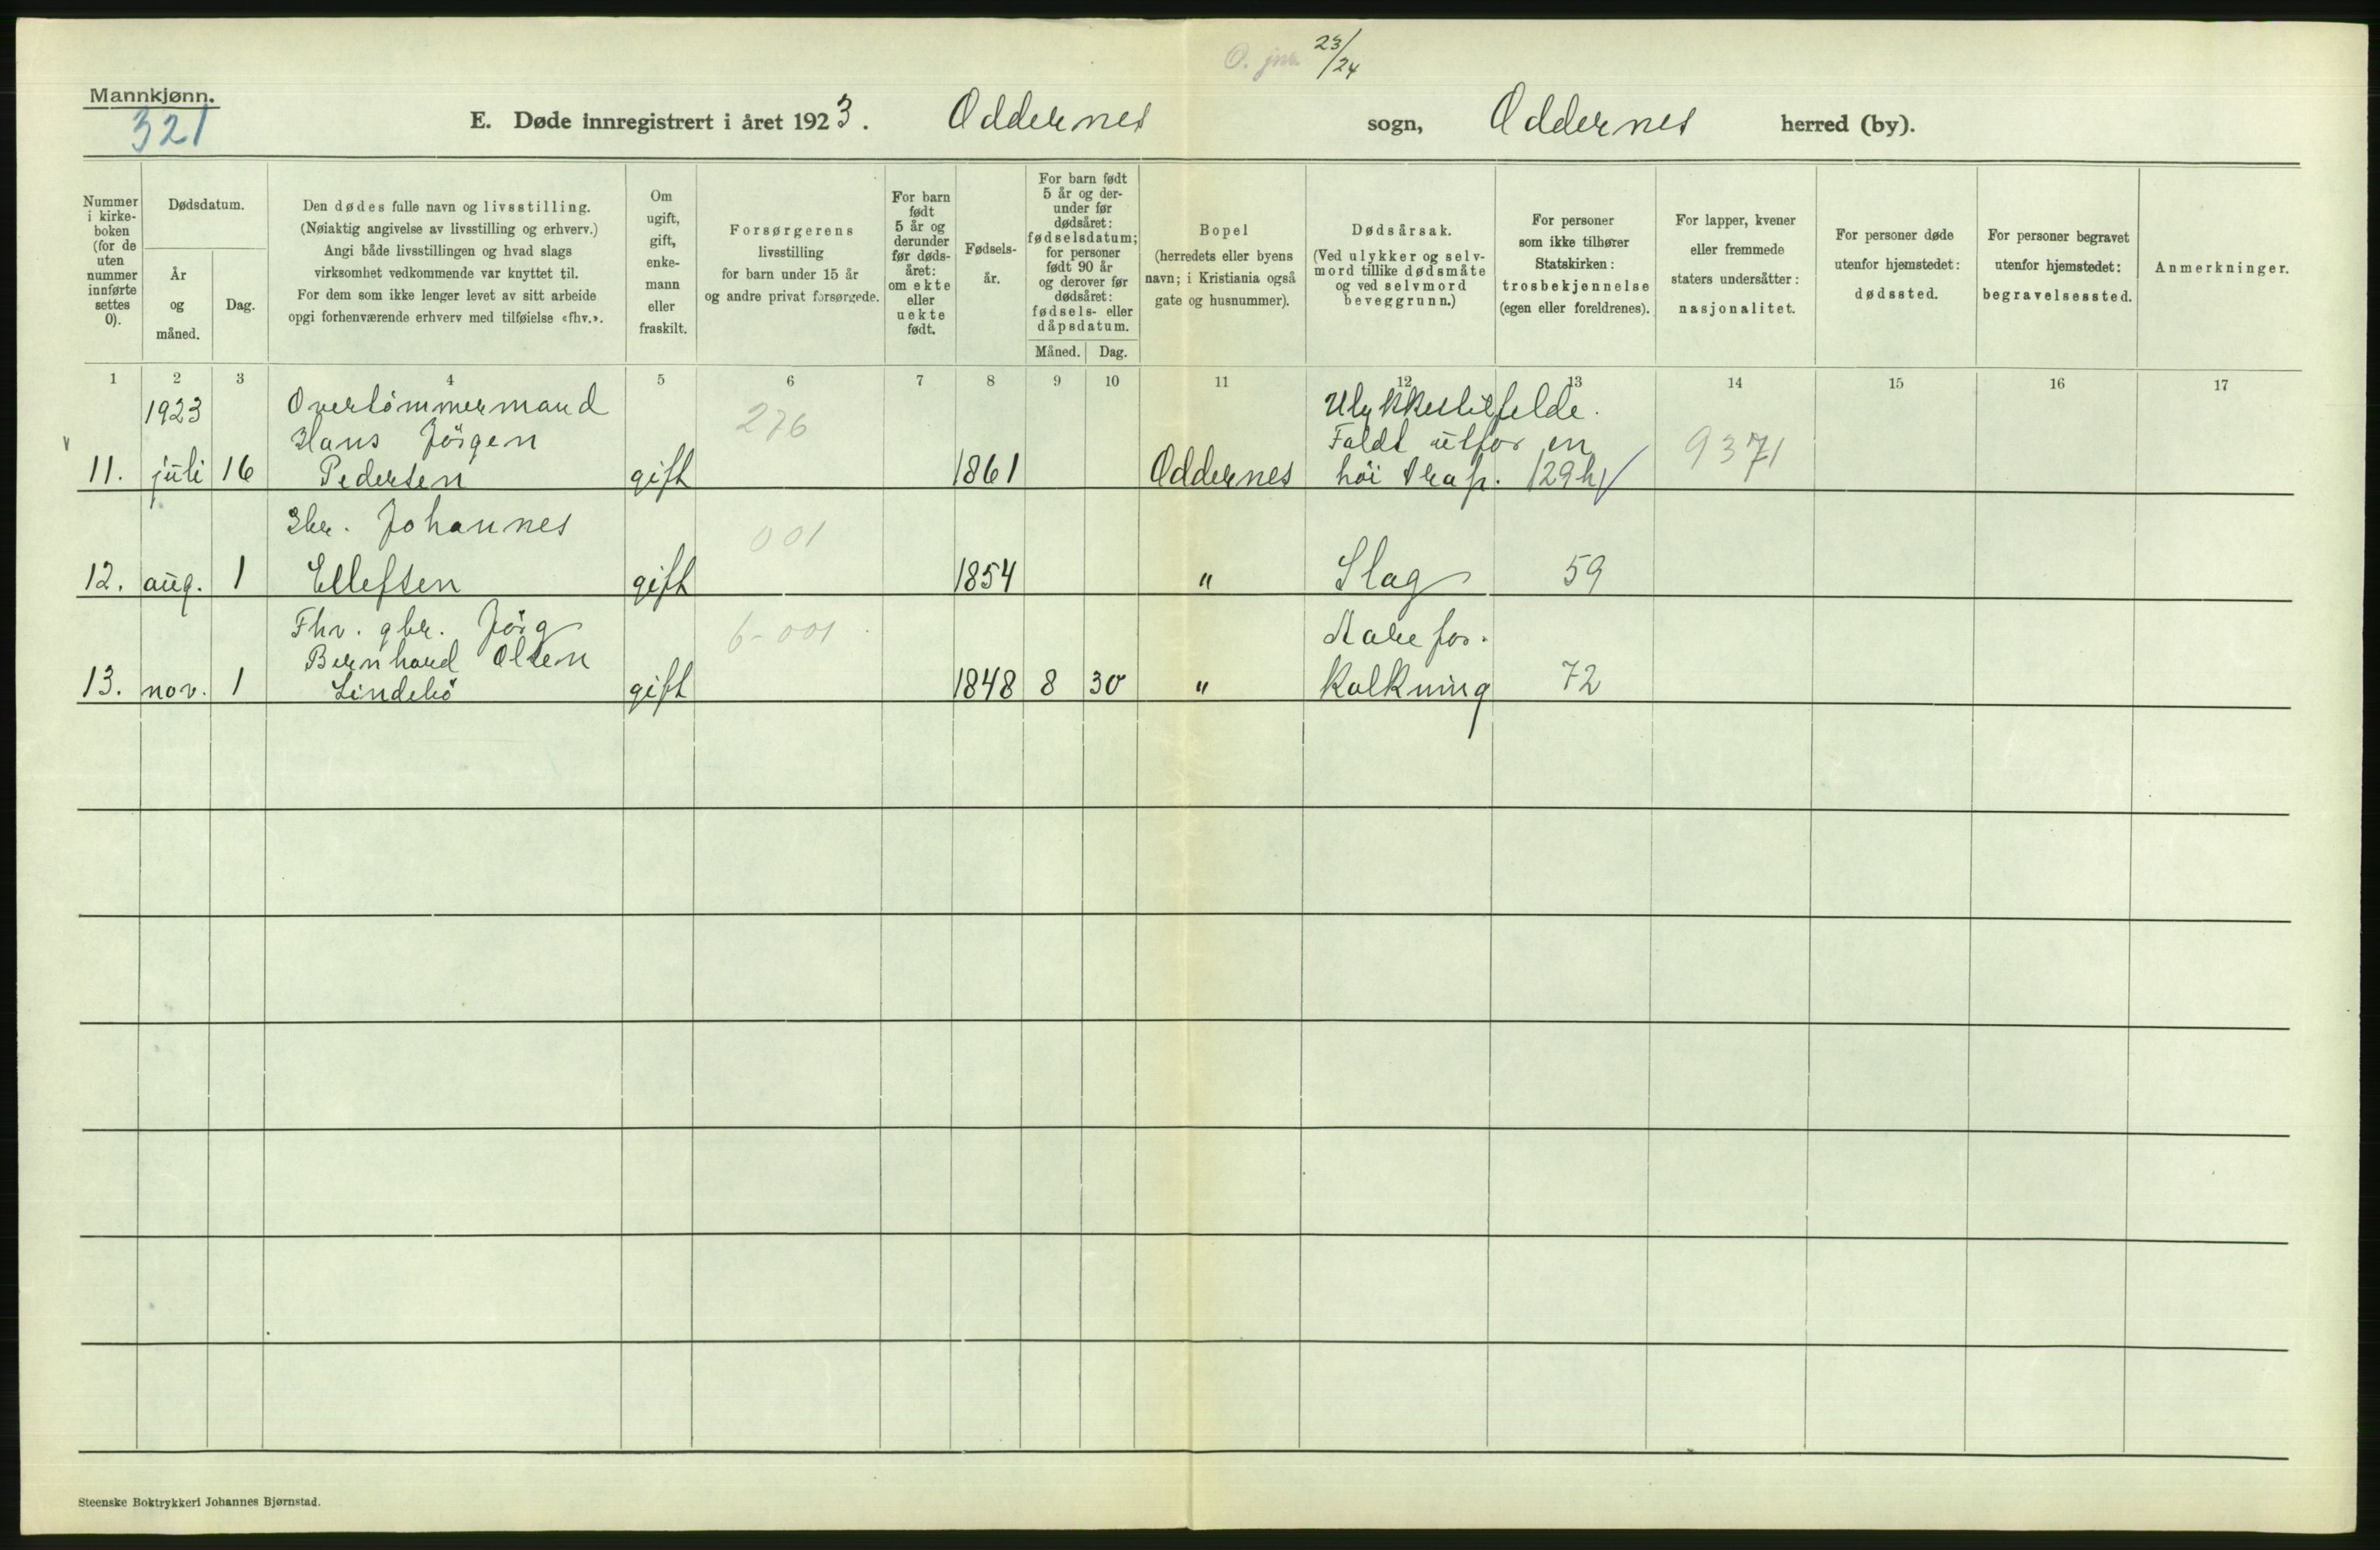 O. jnr. 23/24
Mannkjønn.
321
E. Døde innregistrert i året 1923. Oddernes sogn, Oddernes herred (by).
Nummer
i kirke-
boken
(for de
uten
nummer
innførte
settes
0).
Dødsdatum.
År
og
måned.
Dag.
Den dødes fulle navn og livsstilling.
(Nøiaktig angivelse av livsstilling og erhverv.)
Angi både livsstillingen og hvad slags
virksomhet vedkommende var knyttet til.
For dem som ikke lenger levet av sitt arbeide
opgi forhenværende erhverv med tilføielse «fhv.».
Om
ugift,
gift,
enke-
mann
eller
fraskilt.
Forsørgerens
livsstilling
for barn under 15 år
og andre privat forsørgede.
For barn
født
5 år og
derunder
før døds-
året:
om ekte
eller
uekte
født.
Fødsels-
år.
For barn født
5 år og der-
under før
dødsåret:
fødselsdatum;
for personer
født 90 år
og derover før
dødsåret:
fødsels- eller
dåpsdatum.
Måned. Dag.
Bopel
(herredets eller byens
navn; i Kristiania også
gate og husnummer).
Dødsårsak.
(Ved ulykker og selv-
mord tillike dødsmåte
og ved selvmord
beveggrunn.)
For personer
som ikke tilhører
Statskirken:
trosbekjennelse
(egen eller foreldrenes).
For lapper, kvener
eller fremmede
staters undersåtter:
nasjonalitet.
For personer døde
utenfor hjemstedet:
dødssted.
For personer begravet
utenfor hjemstedet:
begravelsessted.
Anmerkninger.
1 2 3 4 5 6 7 8 9 10 11 12 13 14 15 16 17
1923 Overtömmermand 276 Ulykkestilfelde.
Hans Jörgen Faldt utfor en 9371
11. juli 16 Pedersen gift 1861 Oddernes höi trap. 129h
Johannes 001
12. aug. 1 Ellefsen gift 1854 " Slag 59
Fhv. gbr. Jörg 6-001 Aarefor-
Bernhard Olsen
13. nov. 1 Lindebö gift 1848 8 30 " kalkning 72
Steenske Boktrykkeri Johannes Bjørnstad.